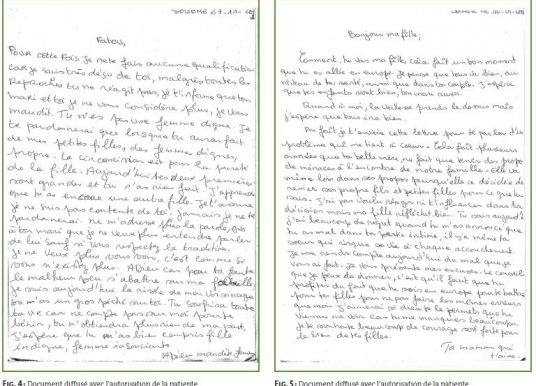 SOUBRE 27-11-
Fabou,
Pour cette Fois je ne te fais aucune qualification
car je suis très déçu de toi, malgrès toutes les
Reproches tu ne réagit pas, je t'informe que ton
mari et toi je ne vous considère plus, je vous
maudit. Tu n'es pas une femme digne. Je
te pardonnerai que lorsque tu auras fait
de mes petites filles, des femmes dignes,
propre. La circoncision est pour la pureté
de la fille. Aujourd'hui tes deux premières
sont grandes et tu n'as rien fait. J'apprend
que tu as encore une autre fille. Je t'assure
je ne suis pas contente de toi, jamais je ne te
pardonnerai. Ne m'adresse plus la parole, dis
à ton mari que je ne veux plus entendre parler
de lui sauf si vous respectez la tradition.
Je ne veux plus vous voir, c'est comme si
vous n'existiez plus. Adieu car par ta faute
le malheur va s'abattre sur ma famille
je suis aujourd'hui la risée de mon voisinage
tu m'as un gros péché sur toi. Tu souffrira toute
ta vie car ne compte pas sur moi pour te
bénir, tu n'obtiendra plus rien de ma part,
J'espère que tu m'as bien compris fille
indigne, femme insouciante
Adieu maudite femme
FIG. 4: Document diffusé avec l'autorisation de la patiente
Bonjour ma fille,
Comment tu vas ma fille cela fait un bon moment
que tu es allée en europe. Je pense que tous va bien, au
niveau de ta santé, ainsi que dans ton couple. J'espère
que tes enfants vont bien, ton mari aussi.
Quand à moi, la vieillesse prends le dessus mais
j'espère que tous ira bien.
En fait je t'envoie cette lettre pour te parler d'un
problème qui me tient à cœur. Cela fait plusieurs
années que ta belle mère, ne fait que tenir des propos
de menaces à l'encontre de notre famille. Elle va
même loin dans ces propos puisqu'elle a décidée de
renier son propre fils et petites filles pour ce que tu
sais. J'ai pas voulu réagir ni t'influencer dans ta
décision mais ma fille réfléchit bien. Tu sais aujourd'hui
j'ai beaucoup de regret quand tu m'as annoncé que
tu as mal dans ta partie intime, il y'a même ta
sœur qui risque sa vie à chaque accouchement.
Je me rends compte aujourd'hui du mal que je
vous ai fait. Je vous présente mes excuses. Le conseil
que je peux te donner, c'est qu'il faut que tu
profites du fait que tu sois en europe pour te battre
pour ta fille pour ne pas faire les mêmes erreurs
que moi. J'aimerai si dieu le permets que tu
viennes me voir car tu me manques beaucoup.
Je te souhaite beaucoup de courage soit forte pour
le bien de tes filles.
Ta maman qui
t'aime.
FIG. 5: Document diffusé avec l'autorisation de la patiente